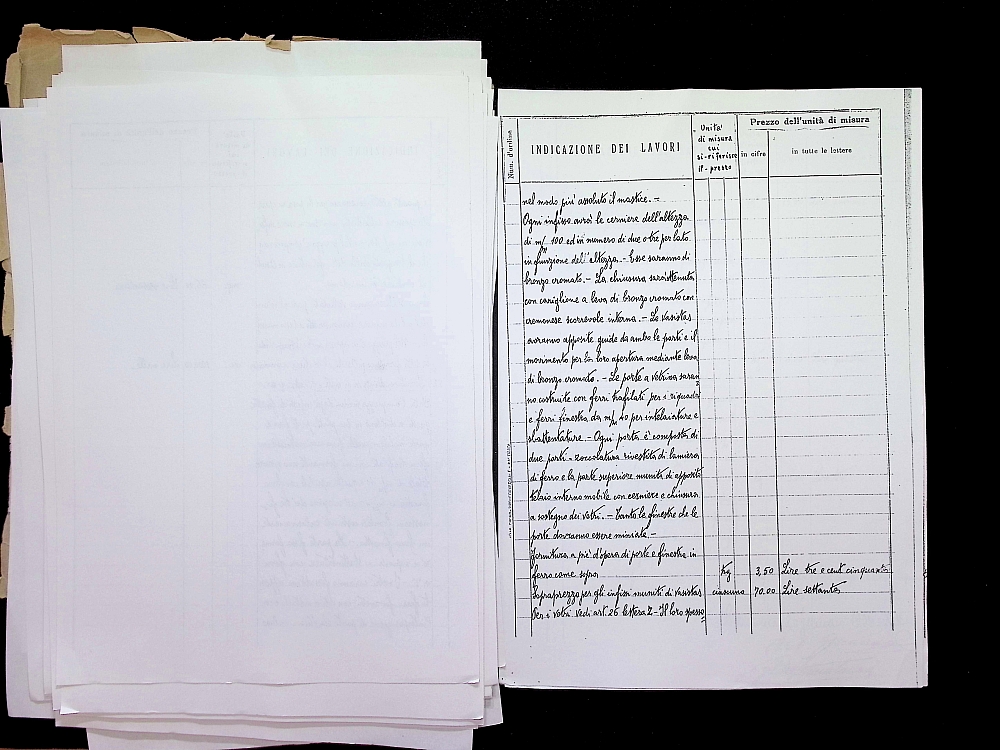 Num. d'ordine
INDICAZIONE DEI LAVORI
Unita'
di misura
cui
si riferisce
il prezzo
Prezzo dell'unità di misura
in cifre
in tutte le lettere
nel modo piu' assoluto il mastice. –
Ogni infisso avrà le cerniere dell'altezza
di m/m 100 ed in numero di due o tre per lato
in funzione dell'altezza. – Esse saranno di
bronzo cromato. – La chiusura sarà ottenuta
con cariglione a leva di bronzo cromato con
cremonese scorrevole interna. – Le vasistas
avranno apposite guide da ambo le parti e il
movimento per la loro apertura mediante leva
di bronzo cromato. – Le porte a vetrina saran
no costruite con ferri trafilati per i riquadri
e ferri finestra da m/m 40 per intelaiature e
sbattentature. – Ogni porta e' composta di
due parti – zoccolatura rivestita di lamiera
di ferro e la parte superiore munita di apposito
telaio interno mobile con cerniere e chiusura
a sostegno dei vetri. – Tanto le finestre che le
porte dovranno essere miniate. –
Fornitura a pie' d'opera di porte e finestre in
ferro come sopra kg 3,50 Lire tre e cent cinquanta
Sopraprezzo per gli infissi muniti di vasistas ciascuno 70.00 Lire settanta
Per i vetri vedi art. 26 lettera Z – Il loro spesso